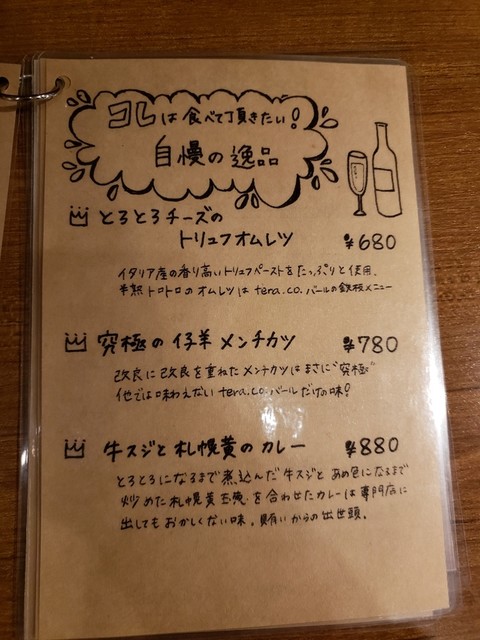 コレは食べて頂きたい!
自慢の逸品
とろとろチーズの
トリュフオムレツ ¥680
イタリア産の香り高いトリュフペーストをたっぷりと使用、
半熟トロトロのオムレツは tera.co.バールの鉄板メニュー
究極の仔羊メンチカツ ¥780
改良に改良を重ねたメンチカツはまさに"究極"
他では味わえない tera.co.バールだけの味!
牛スジと札幌黄のカレー ¥880
とろとろになるまで煮込んだ牛スジと あめ色になるまで
炒めた札幌黄玉葱を合わせたカレーは専門店に
出してもおかしくない味。賄いからの出世頭。